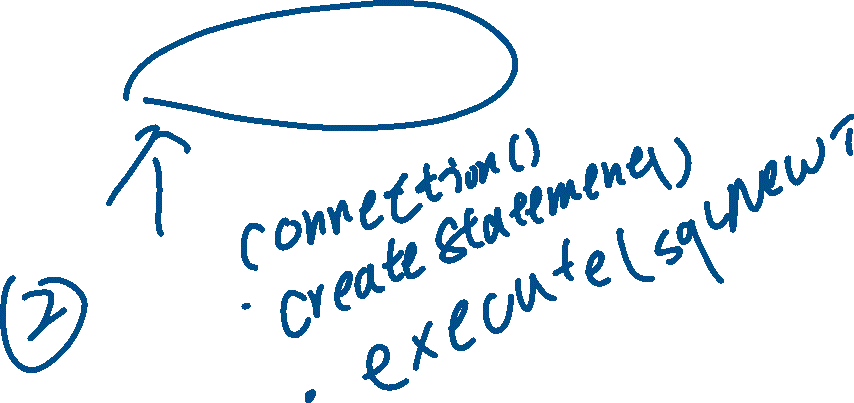 connection()
.createStatement()
.execute(sqlNewT
②